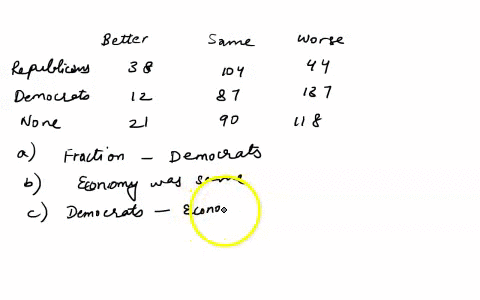 Better Same Worse
Republicans 38 104 44
Democrats 12 87 137
None 21 90 118
a) Fraction - Democrats
b) Economy was same
c) Democrats - Econo